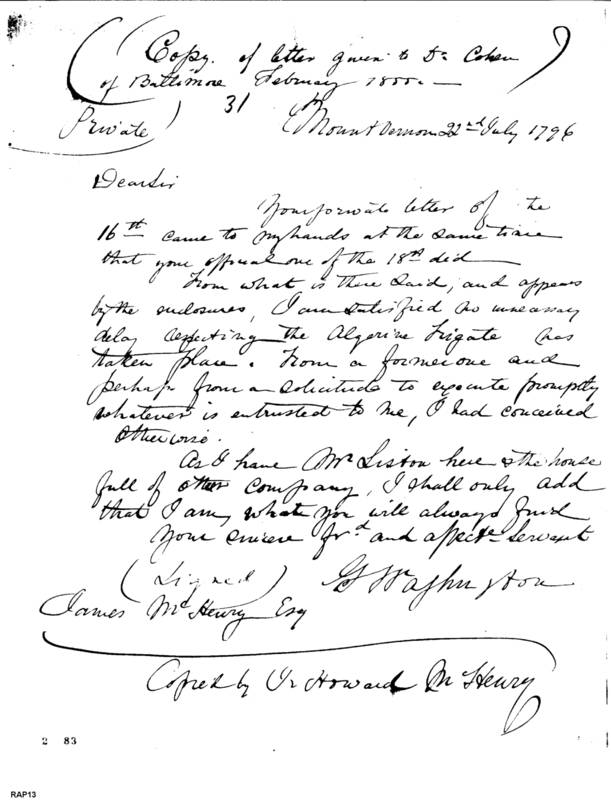 (Copy. of letter given to Dr Cohen
of Baltimore February 1855.—)
31
(Private)
Mount Vernon 22nd July 1796
Dear Sir
Your private letter of the
16th came to my hands at the same time
that your official one of the 18th did
From what is there said, and appears
by the enclosures, I am satisfied no unnecessary
delay respecting the Algerine Frigate has
taken place. From a former one and
perhaps from a solicitude to execute promptly
whatever is entrusted to me, I had conceived
otherwise.
As I have Mr Liston here & the house
full of other company, I shall only add
that I am, what you will always find
Your sincere frd and affecte servant
(Signed) G Washington
James McHenry Esq
Copied by Jr Howard McHenry
2 83
RAP13